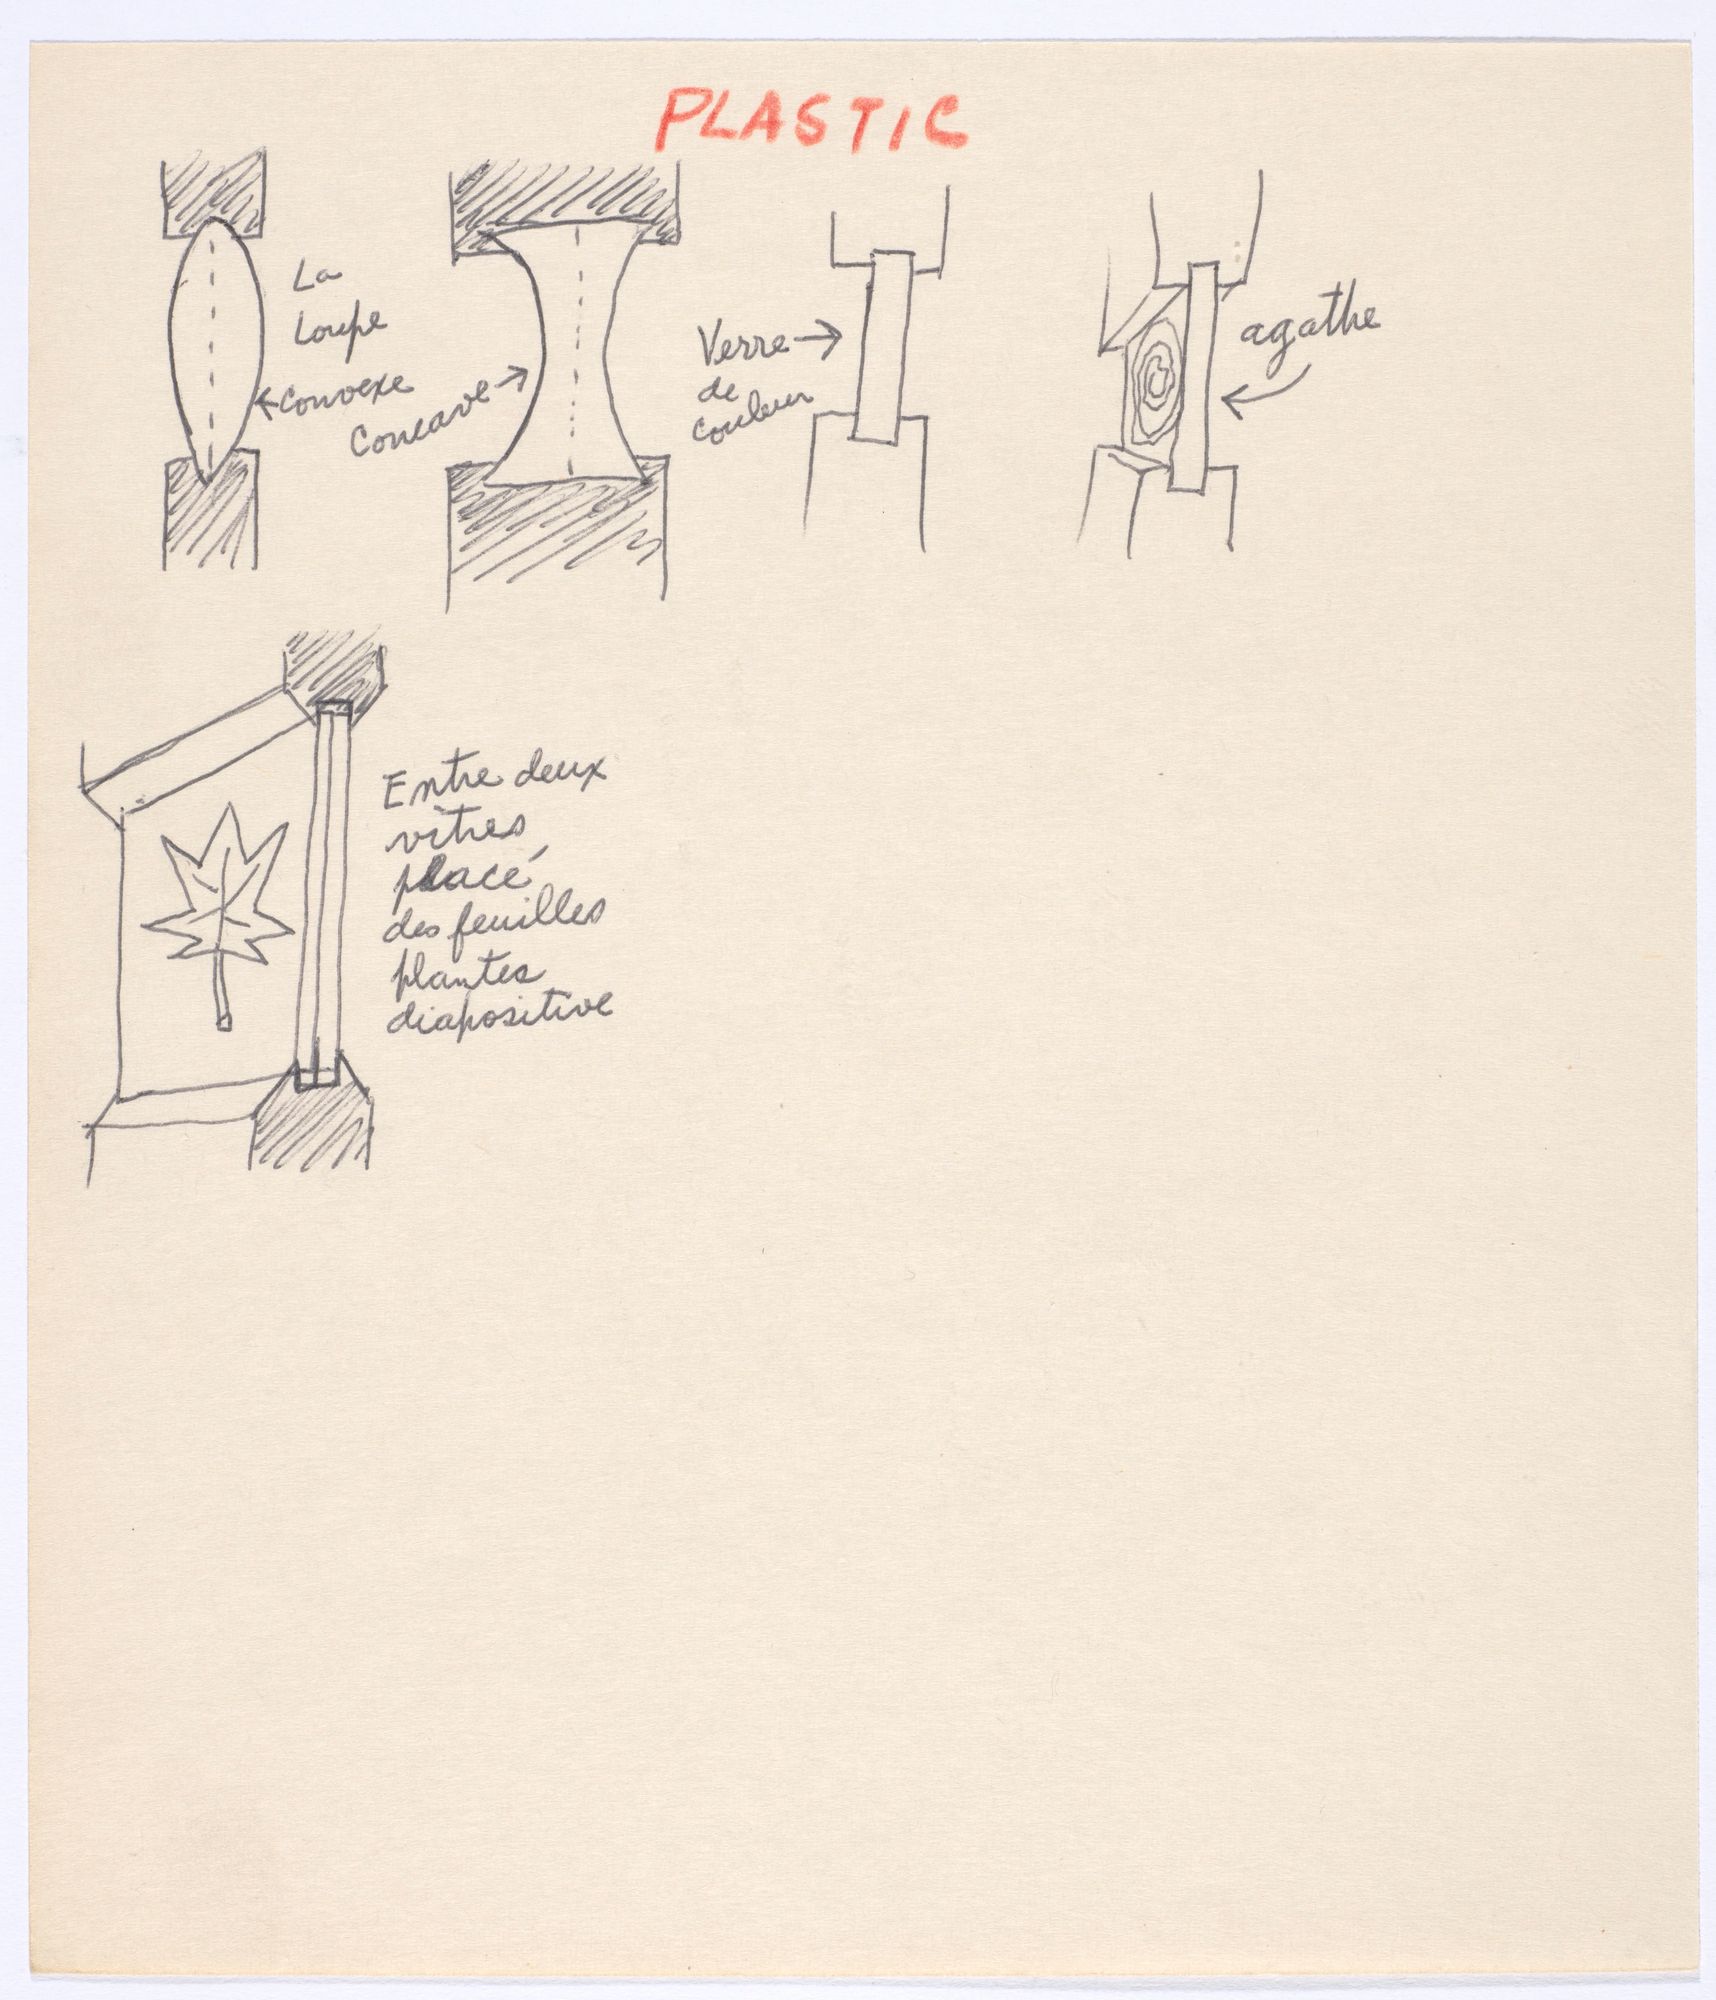 PLASTIC
La
Loupe
Convexe
Concave
Verre
de
couleur
agathe
Entre deux
vitres
placé
des feuilles
plantes
diapositive